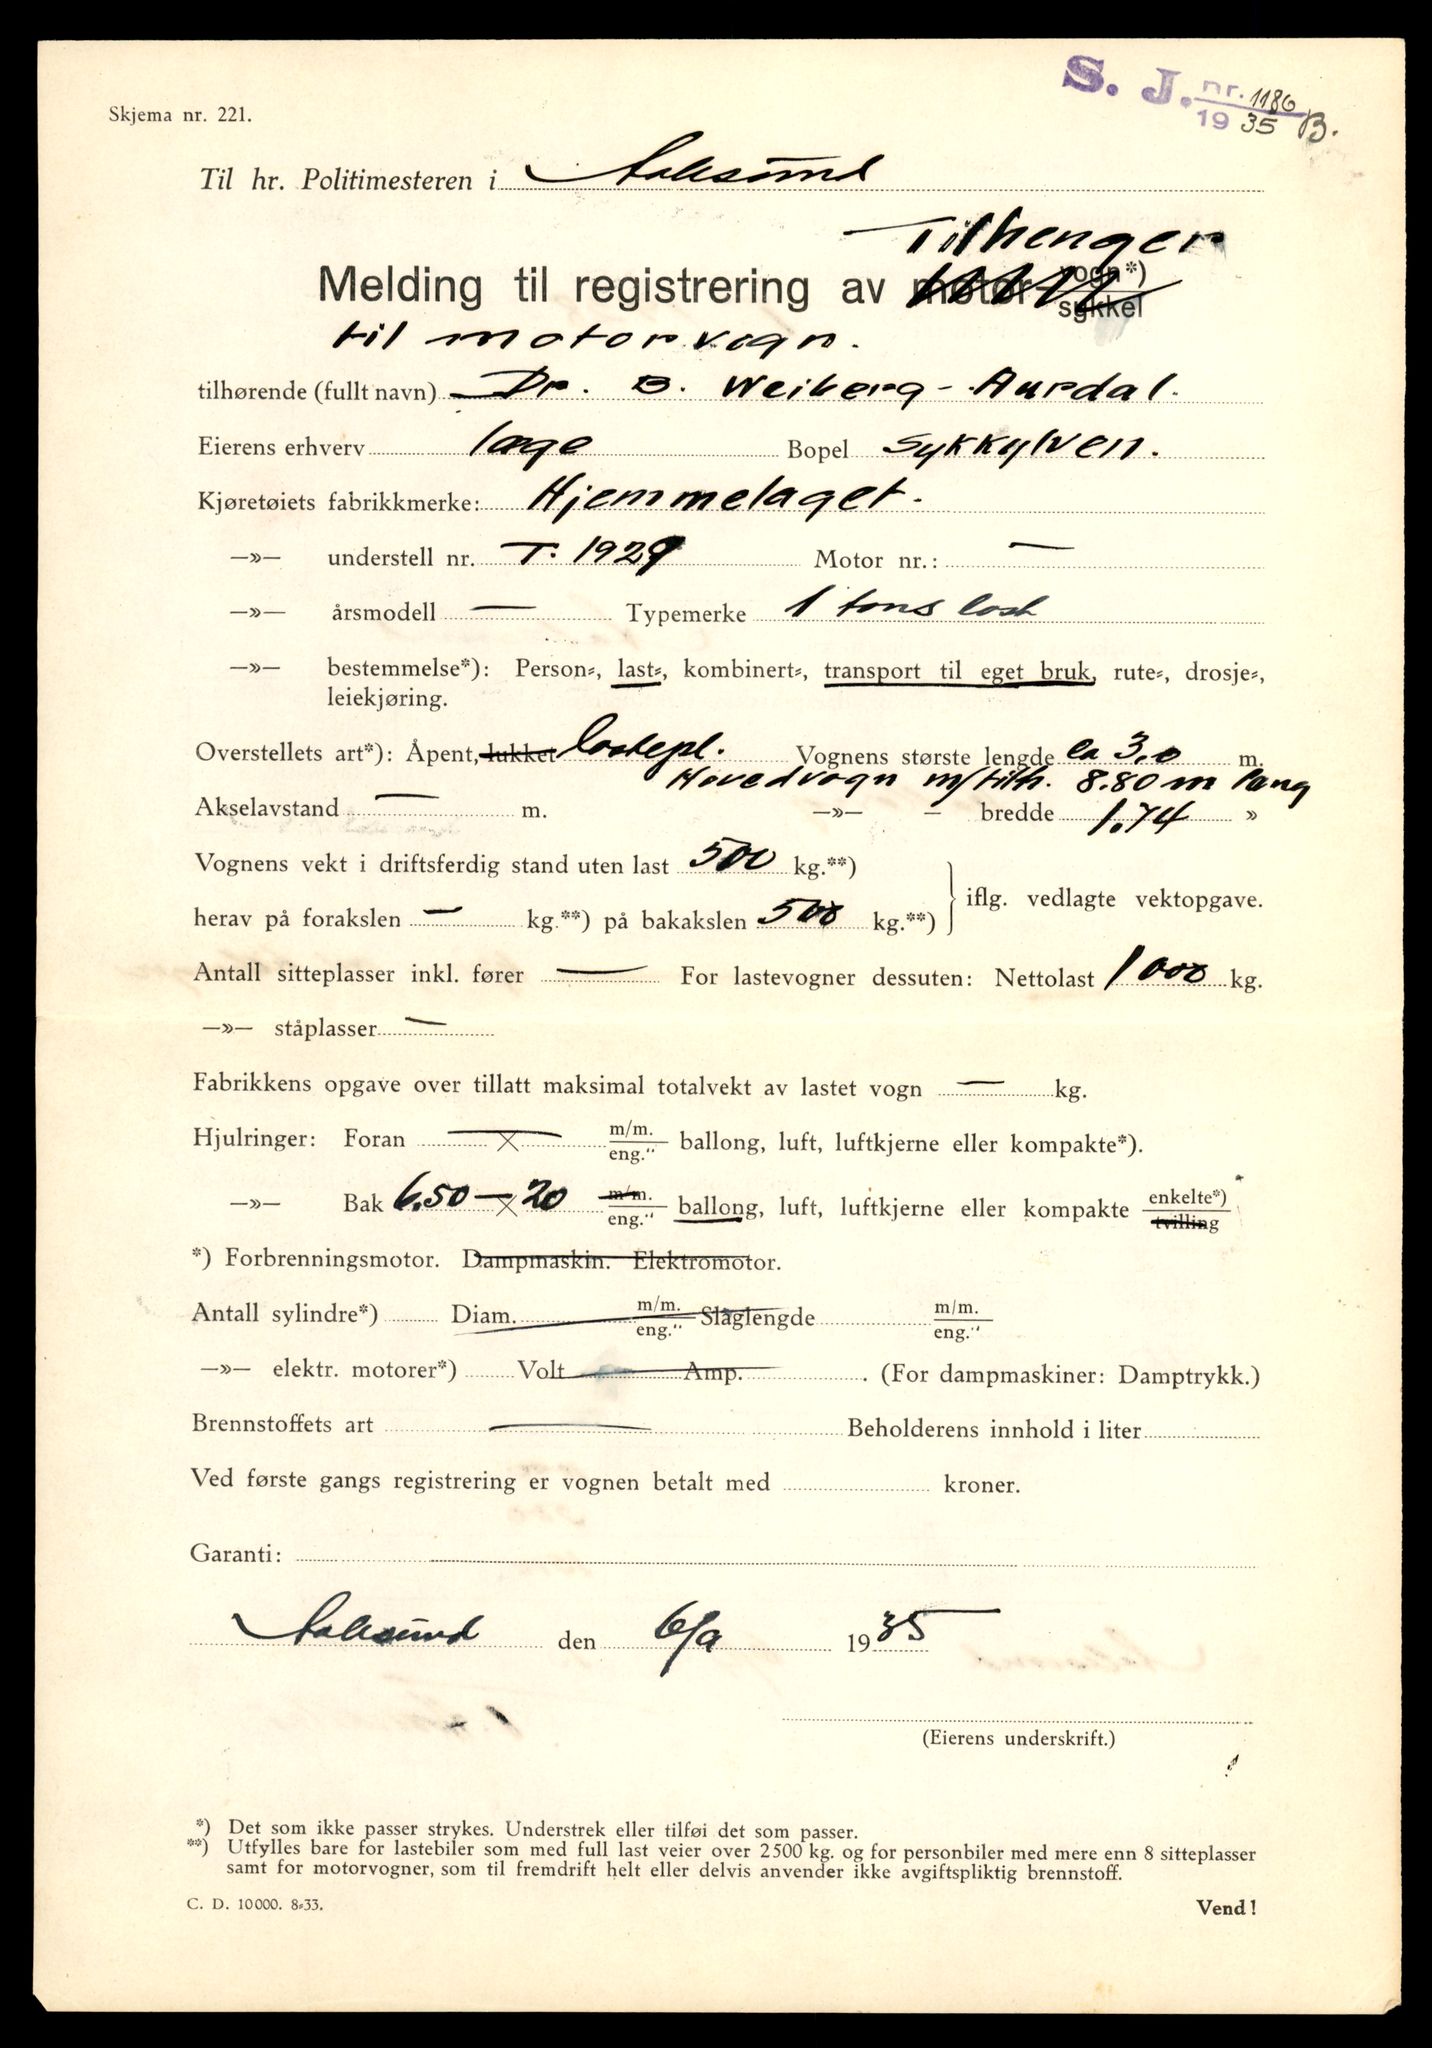 S. J. nr. 1186
19 35 B.
Skjema nr. 221.
Til hr. Politimesteren i Aalesund
Tilhenger
Melding til registrering av motor- vogn*) sykkel
til motorvogn.
tilhørende (fullt navn) Dr. B. Weiberg-Aurdal.
Eierens erhverv læge Bopel Sykkylven.
Kjøretøiets fabrikkmerke: Hjemmelaget.
—»— understell nr. T. 1929 Motor nr.: —
—»— årsmodell — Typemerke 1 tons last
—»— bestemmelse*): Person-, last-, kombinert-, transport til eget bruk, rute-, drosje-,
leiekjøring.
Overstellets art*): Åpent, lukket lastepl. Vognens største lengde ca 3.0 m.
Hovedvogn m/tilh. 8.80 m lang
Akselavstand — m. —»— – bredde 1.74 »
Vognens vekt i driftsferdig stand uten last 500 kg.**)
iflg. vedlagte vektopgave.
herav på forakslen — kg.**) på bakakslen 500 kg.**)
Antall sitteplasser inkl. fører — For lastevogner dessuten: Nettolast 1000 kg.
—»— ståplasser —
Fabrikkens opgave over tillatt maksimal totalvekt av lastet vogn — kg.
Hjulringer: Foran — × m/m. eng." ballong, luft, luftkjerne eller kompakte*).
—»— Bak 6.50 — × 20 m/m. eng." ballong, luft, luftkjerne eller kompakte enkelte*) tvilling
*) Forbrenningsmotor. Dampmaskin. Elektromotor.
Antall sylindre*) Diam. m/m. eng." Slaglengde m/m. eng."
—»— elektr. motorer*) Volt Amp. . (For dampmaskiner: Damptrykk.)
Brennstoffets art — Beholderens innhold i liter
Ved første gangs registrering er vognen betalt med kroner.
Garanti:
Aalesund den 6/9 1935
(Eierens underskrift.)
*) Det som ikke passer strykes. Understrek eller tilføi det som passer.
**) Utfylles bare for lastebiler som med full last veier over 2500 kg. og for personbiler med mere enn 8 sitteplasser
samt for motorvogner, som til fremdrift helt eller delvis anvender ikke avgiftspliktig brennstoff.
C. D. 10000. 8-33.
Vend!